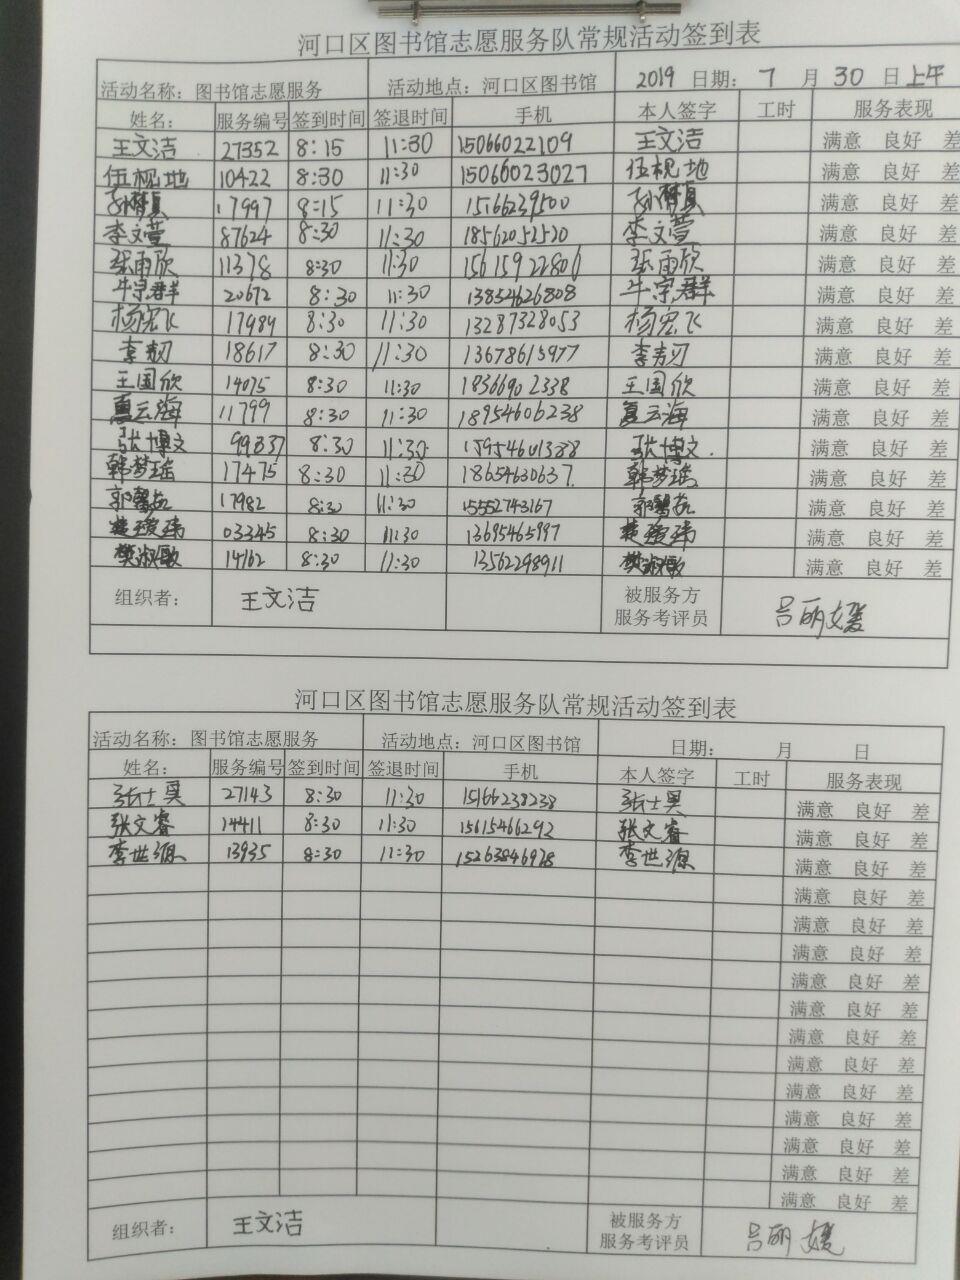 河口区图书馆志愿服务队常规活动签到表
活动名称：图书馆志愿服务 活动地点：河口区图书馆 2019 日期：7 月 30 日 上午
姓名： 服务编号 签到时间 签退时间 手机 本人签字 工时 服务表现
王文洁 27352 8:15 11:30 15066022109 王文洁 满意 良好 差
伍枧地 10422 8:30 11:30 15066023027 伍枧地 满意 良好 差
17997 8:15 11:30 15166239500 满意 良好 差
李文萱 87624 8:30 11:30 18562052520 李文萱 满意 良好 差
张雨欣 11378 8:30 11:30 15615922801 张雨欣 满意 良好 差
牛宗群 20672 8:30 11:30 13854626808 牛宗群 满意 良好 差
杨宏飞 17989 8:30 11:30 13287328053 杨宏飞 满意 良好 差
李韧 18617 8:30 11:30 13678615977 李韧 满意 良好 差
王国欣 14075 8:30 11:30 18366902338 王国欣 满意 良好 差
夏云海 11799 8:30 11:30 18954606238 夏云海 满意 良好 差
张博文 99837 8:30 11:30 15954601388 张博文 满意 良好 差
韩梦瑶 17475 8:30 11:30 18654630637 韩梦瑶 满意 良好 差
17982 8:30 11:30 15552743167 满意 良好 差
03345 8:30 11:30 13695465997 满意 良好 差
樊淑敏 14162 8:30 11:30 13562298911 樊淑敏 满意 良好 差
组织者： 王文洁 被服务方 服务考评员 吕丽媛
河口区图书馆志愿服务队常规活动签到表
活动名称：图书馆志愿服务 活动地点：河口区图书馆 日期： 月 日
姓名： 服务编号 签到时间 签退时间 手机 本人签字 工时 服务表现
张士昊 27143 8:30 11:30 15166238238 张士昊 满意 良好 差
张文睿 14411 8:30 11:30 15615466292 张文睿 满意 良好 差
李世源 13935 8:30 11:30 15263846928 李世源 满意 良好 差
满意 良好 差
满意 良好 差
满意 良好 差
满意 良好 差
满意 良好 差
满意 良好 差
满意 良好 差
满意 良好 差
满意 良好 差
满意 良好 差
满意 良好 差
满意 良好 差
组织者： 王文洁 被服务方 服务考评员 吕丽媛